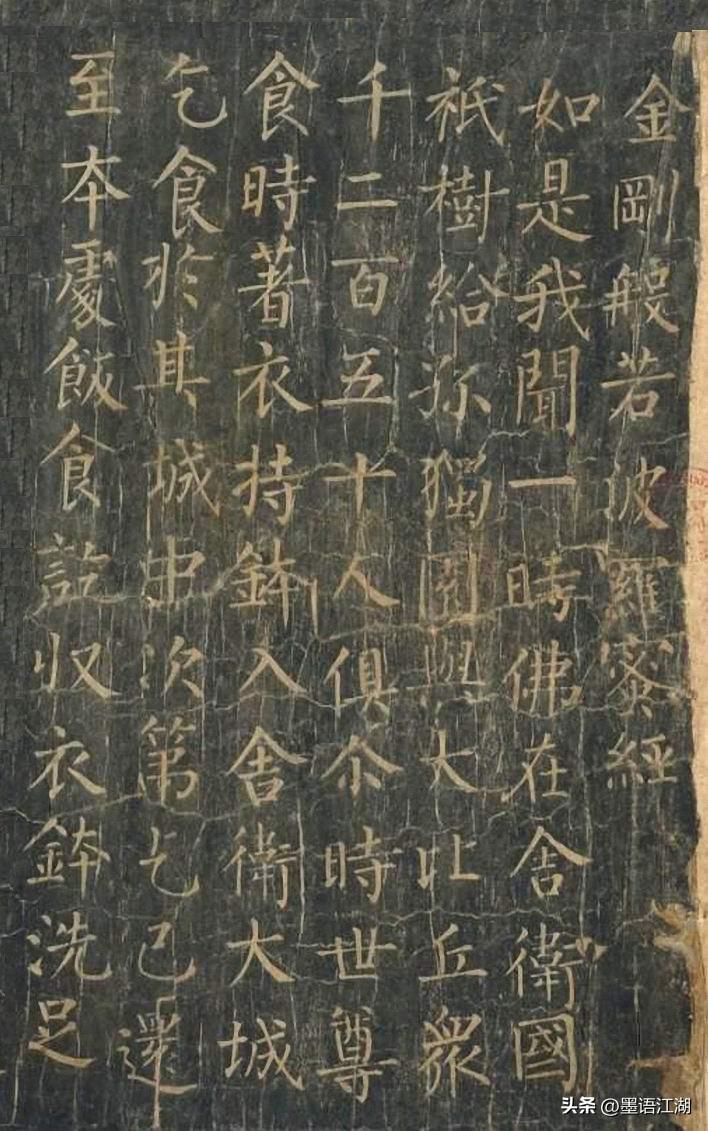 金剛般若波羅蜜經
如是我聞一時佛在舍衛國
祇樹給孤獨園與大比丘眾
千二百五十人俱尒時世尊
食時著衣持鉢入舍衛大城
乞食於其城中次第乞已還
至本處飯食訖収衣鉢洗足
头条 @墨语江湖